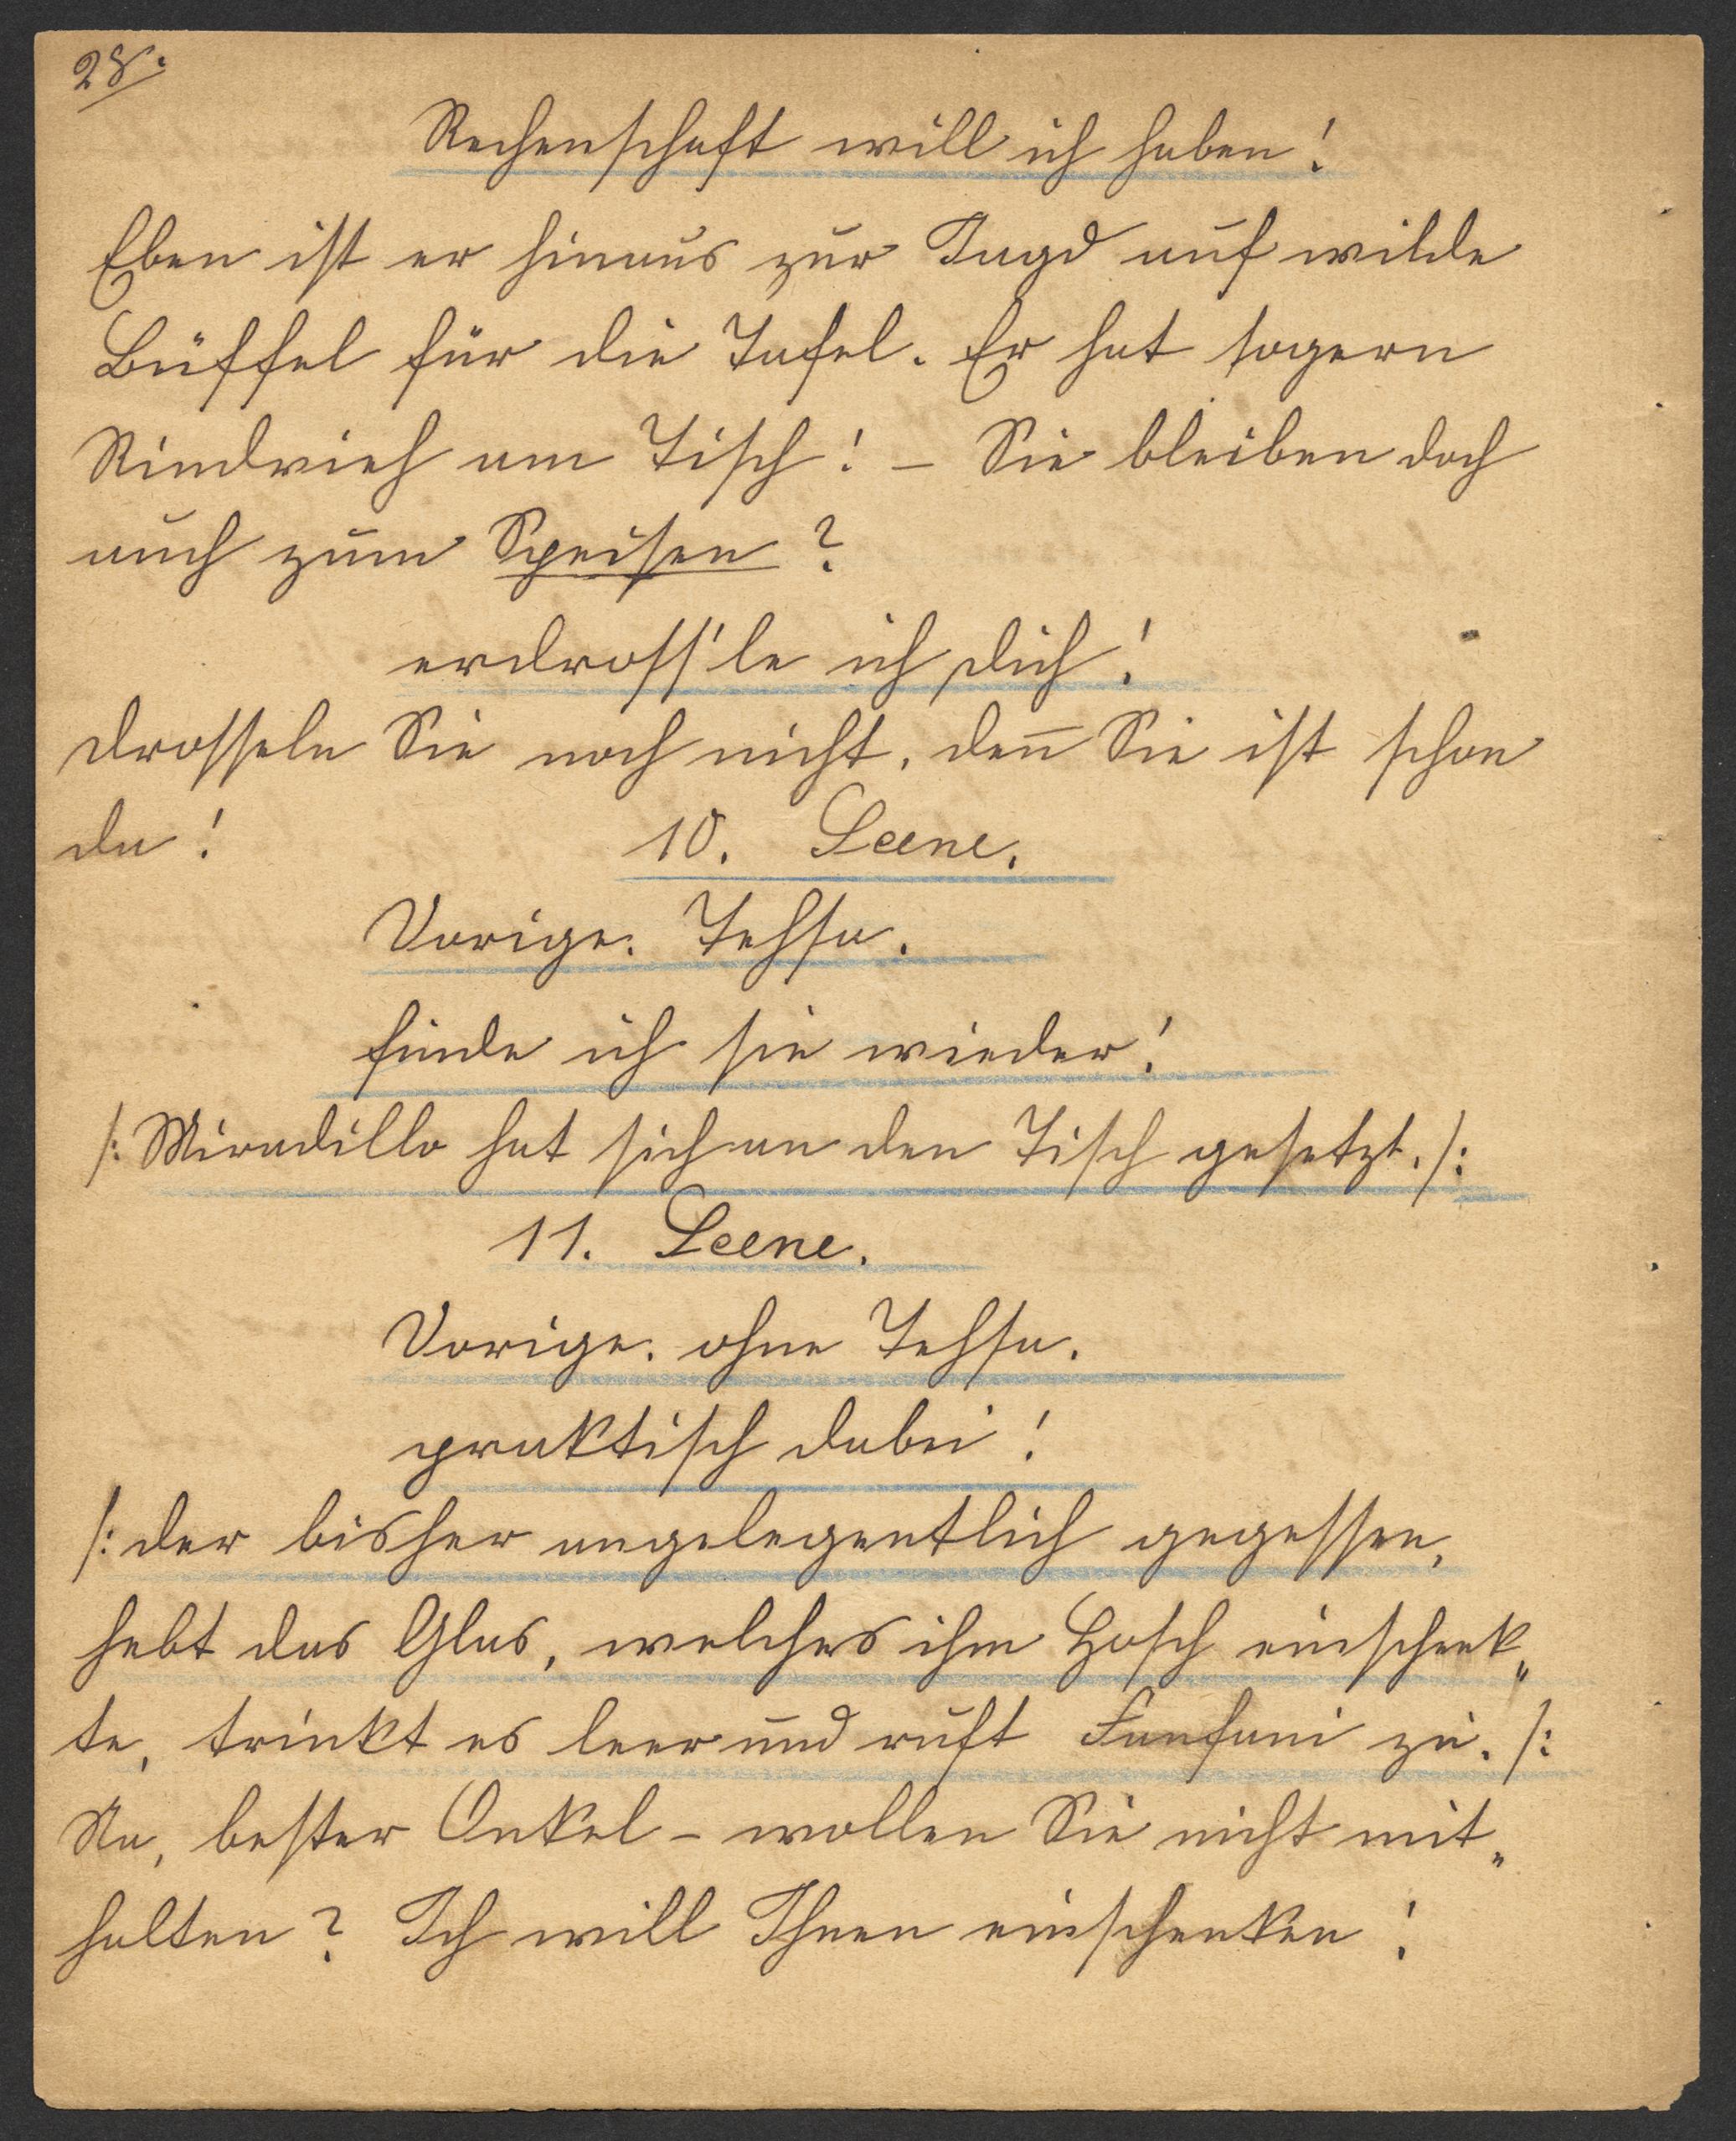 28.
Rechenschaft will ich haben!
Eben ist er hinaus zur Jagd auf wilde
Büffel für die Tafel. Er hat sogern
Rindvieh am Tisch! – Sie bleiben doch
auch zum Speisen?
erdross'le ich dich!
drosseln Sie noch nicht, den̄ Sie ist schon
da!
10. Scene.
Vorige. Tessa.
finde ich sie wieder!
/: Miradillo hat sich an den Tisch gesetzt. /:
11. Scene.
Vorige. ohne Tessa.
praktisch dabei!
/: der bisher angelegentlich gegessen,
hebt das Glas, welches ihm Hosch einschenk„
te, trinkt es leer und ruft Fanfani zu. /:
Na, bester Onkel – wollen Sie nicht mit„
halten? Ich will Ihnen einschenken!